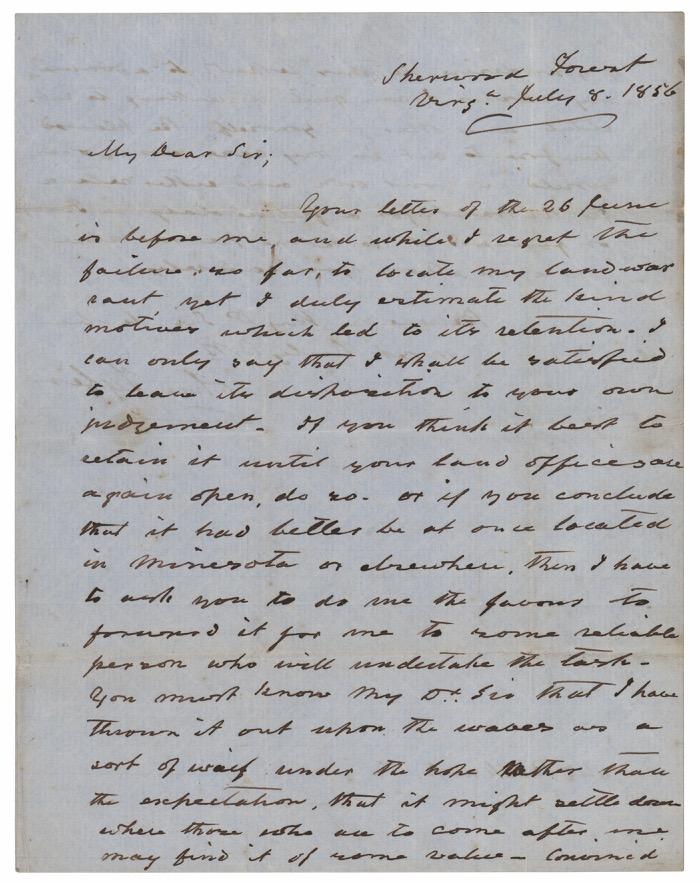 Sherwood Forest
Virga July 8. 1856
My Dear Sir;
Your letter of the 26 June
is before me, and while I regret the
failure, so far, to locate my land war
rant, yet I duly estimate the kind
motives which led to its retention. I
can only say that I shall be satisfied
to leave its disposition to your own
judgement. If you think it best to
retain it until your land offices are
again open, do so. or if you conclude
that it had better be at once located
in Minesota or elsewhere, then I have
to ask you to do me the favour to
forward it for me to some reliable
person who will undertake the task.
You must know My Dr. Sir that I have
thrown it out upon the waves as a
sort of waif under the hope rather than
the expectation, that it might settle down
where those who are to come after me
may find it of some value - Convinc'd